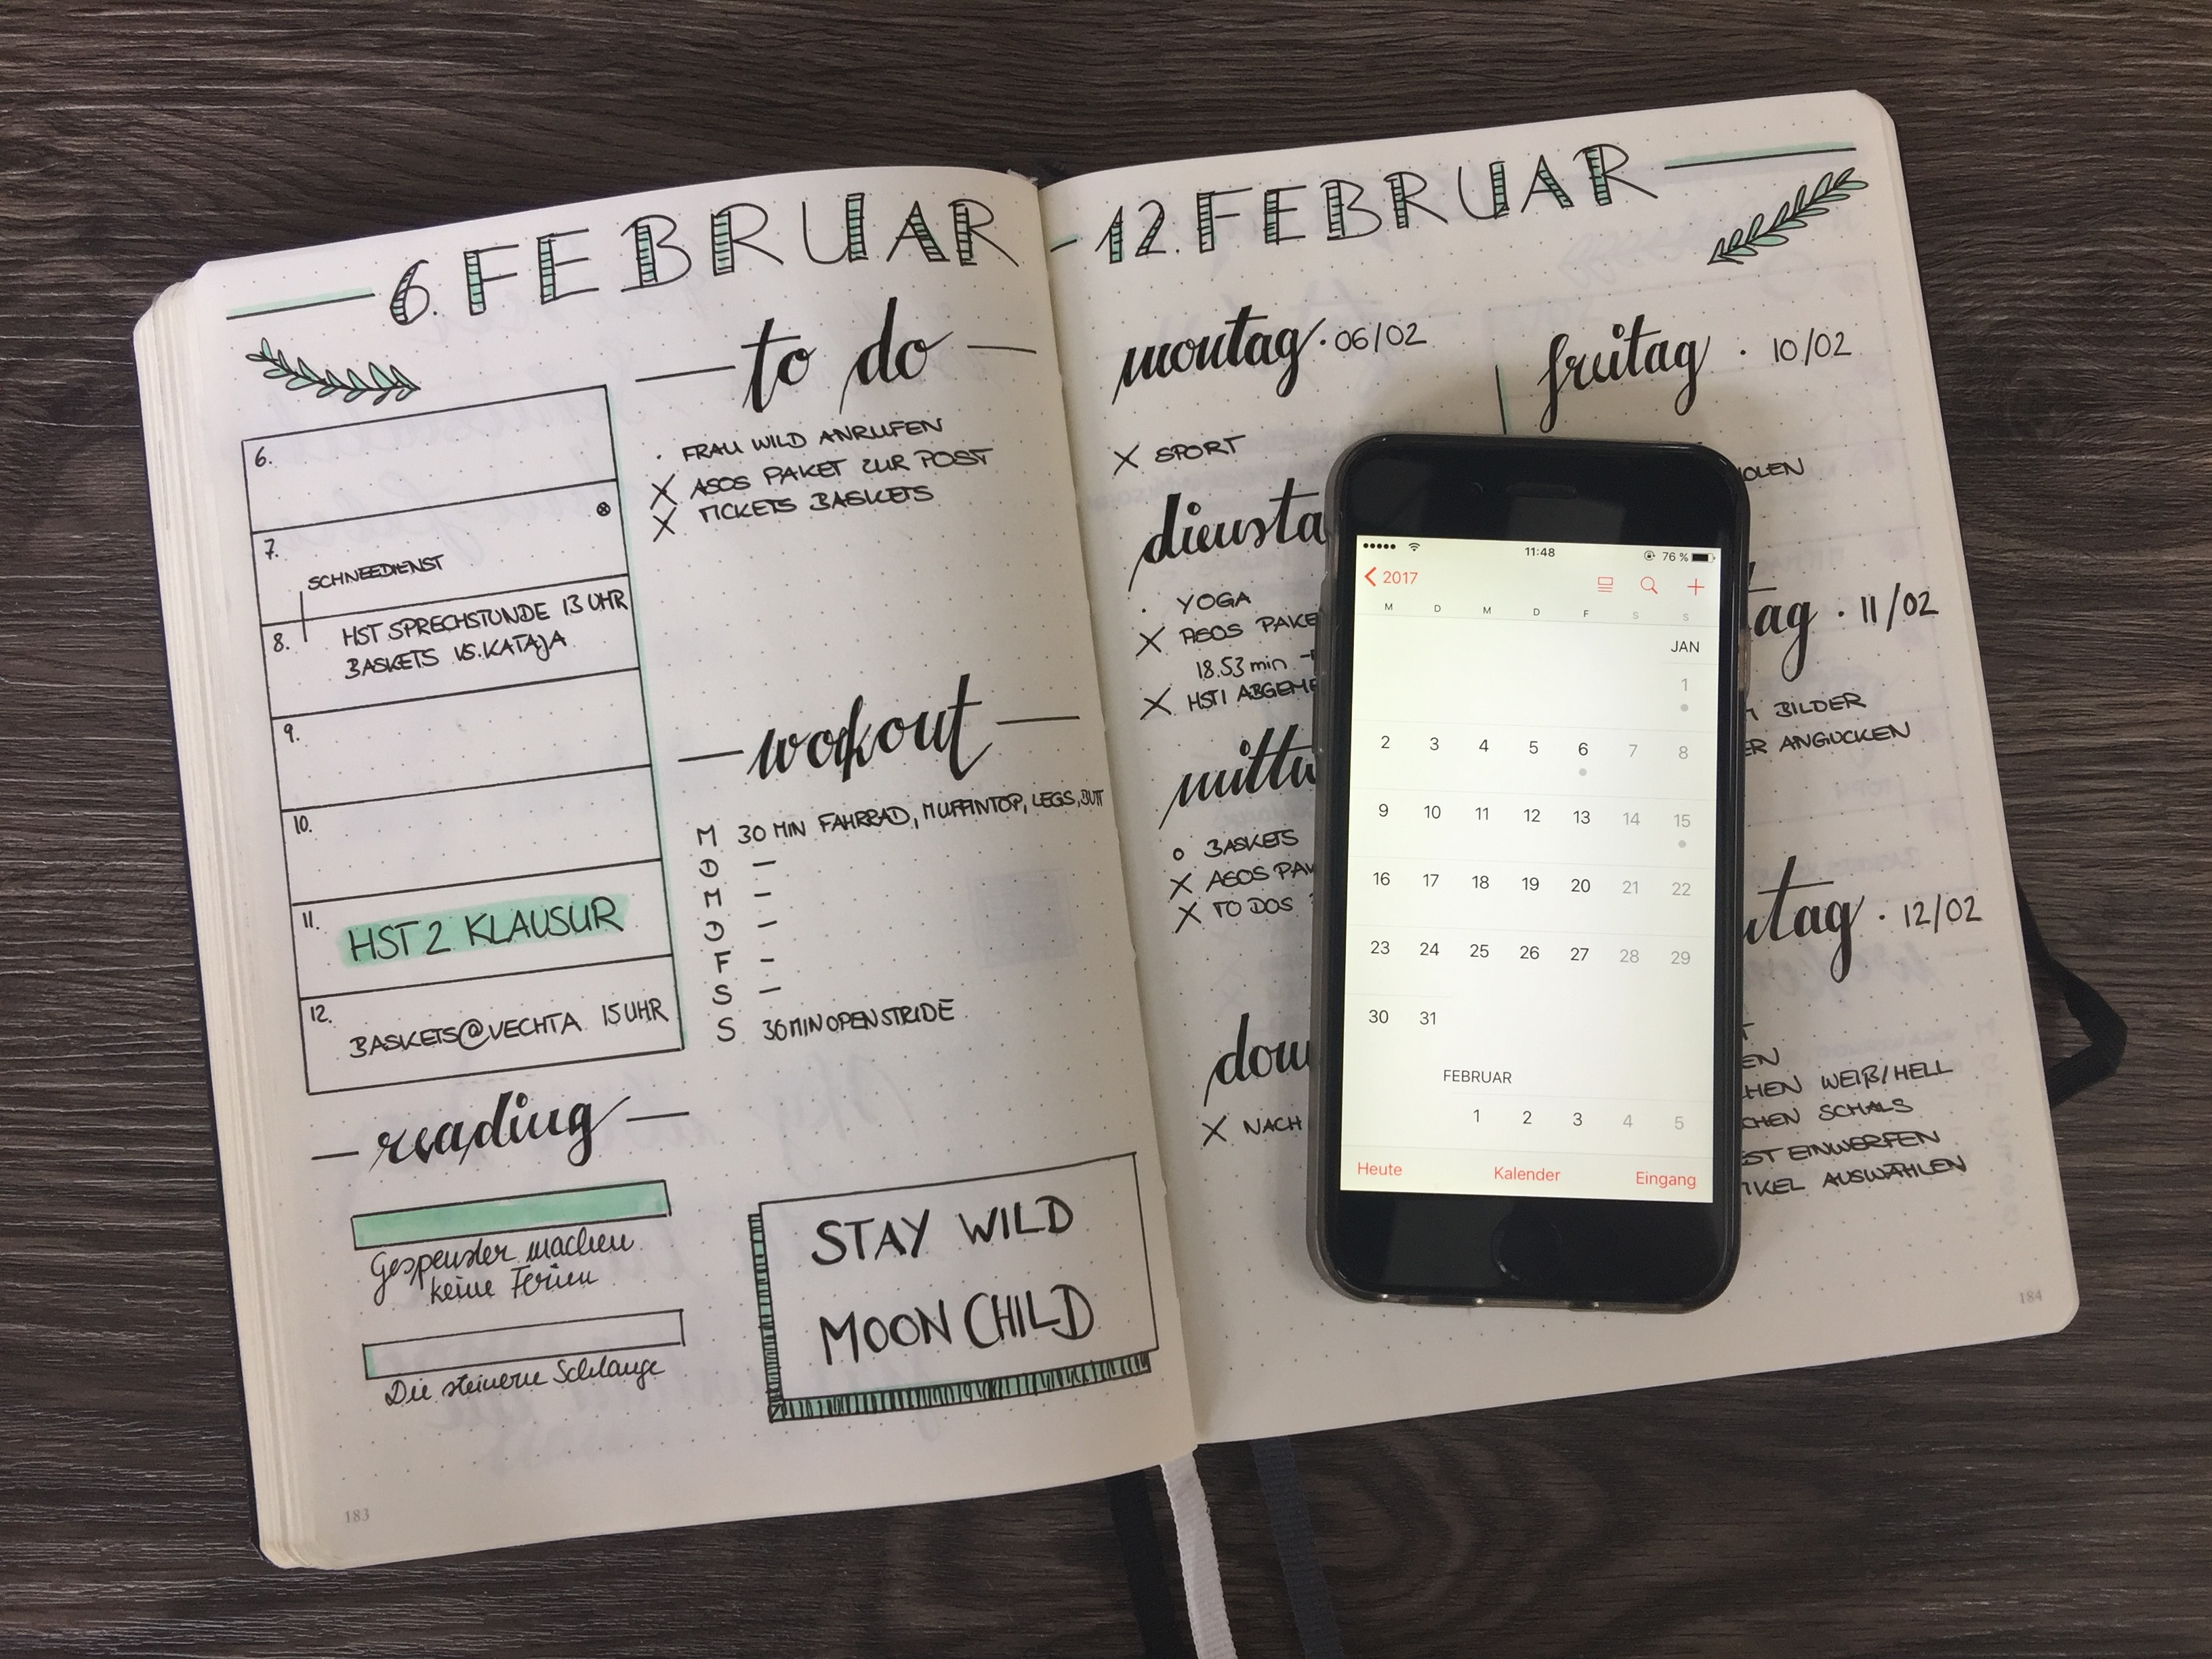 6. FEBRUAR
- 12. FEBRUAR
6.
7.
SCHNEEDIENST
8.
HST SPRECHSTUNDE 13 UHR
BASKETS VS. KATAJA
9.
10.
11.
HST 2 KLAUSUR
12.
BASKETS@VECHTA 15 UHR
to do
· FRAU WILD ANRUFEN
X ASOS PAKET ZUR POST
X TICKETS BASKETS
workout
M 30 MIN FAHRRAD, MUFFINTOP, LEGS, BUTT
D –
M –
D –
F –
S –
S 30 MIN OPEN STRIDE
reading
Gespenster machen
keine Ferien
Die steinerne Schlange
STAY WILD
MOON CHILD
183
montag · 06/02
X SPORT
diensta
· YOGA
X ASOS PAKE
18.53 min
X HST1 ABGEME
mittw
o BASKETS
X ASOS PAK
X TO DOS
don
X NACH
freitag · 10/02
OLEN
tag · 11/02
BILDER
ER ANGUCKEN
ntag · 12/02
EN
CHEN WEIß/HELL
CHEN SCHALS
ST EINWERFEN
IKEL AUSWÄHLEN
184
11:48
76 %
2017
M D M D F S S
JAN
1
2 3 4 5 6 7 8
9 10 11 12 13 14 15
16 17 18 19 20 21 22
23 24 25 26 27 28 29
30 31
FEBRUAR
1 2 3 4 5
Heute Kalender Eingang